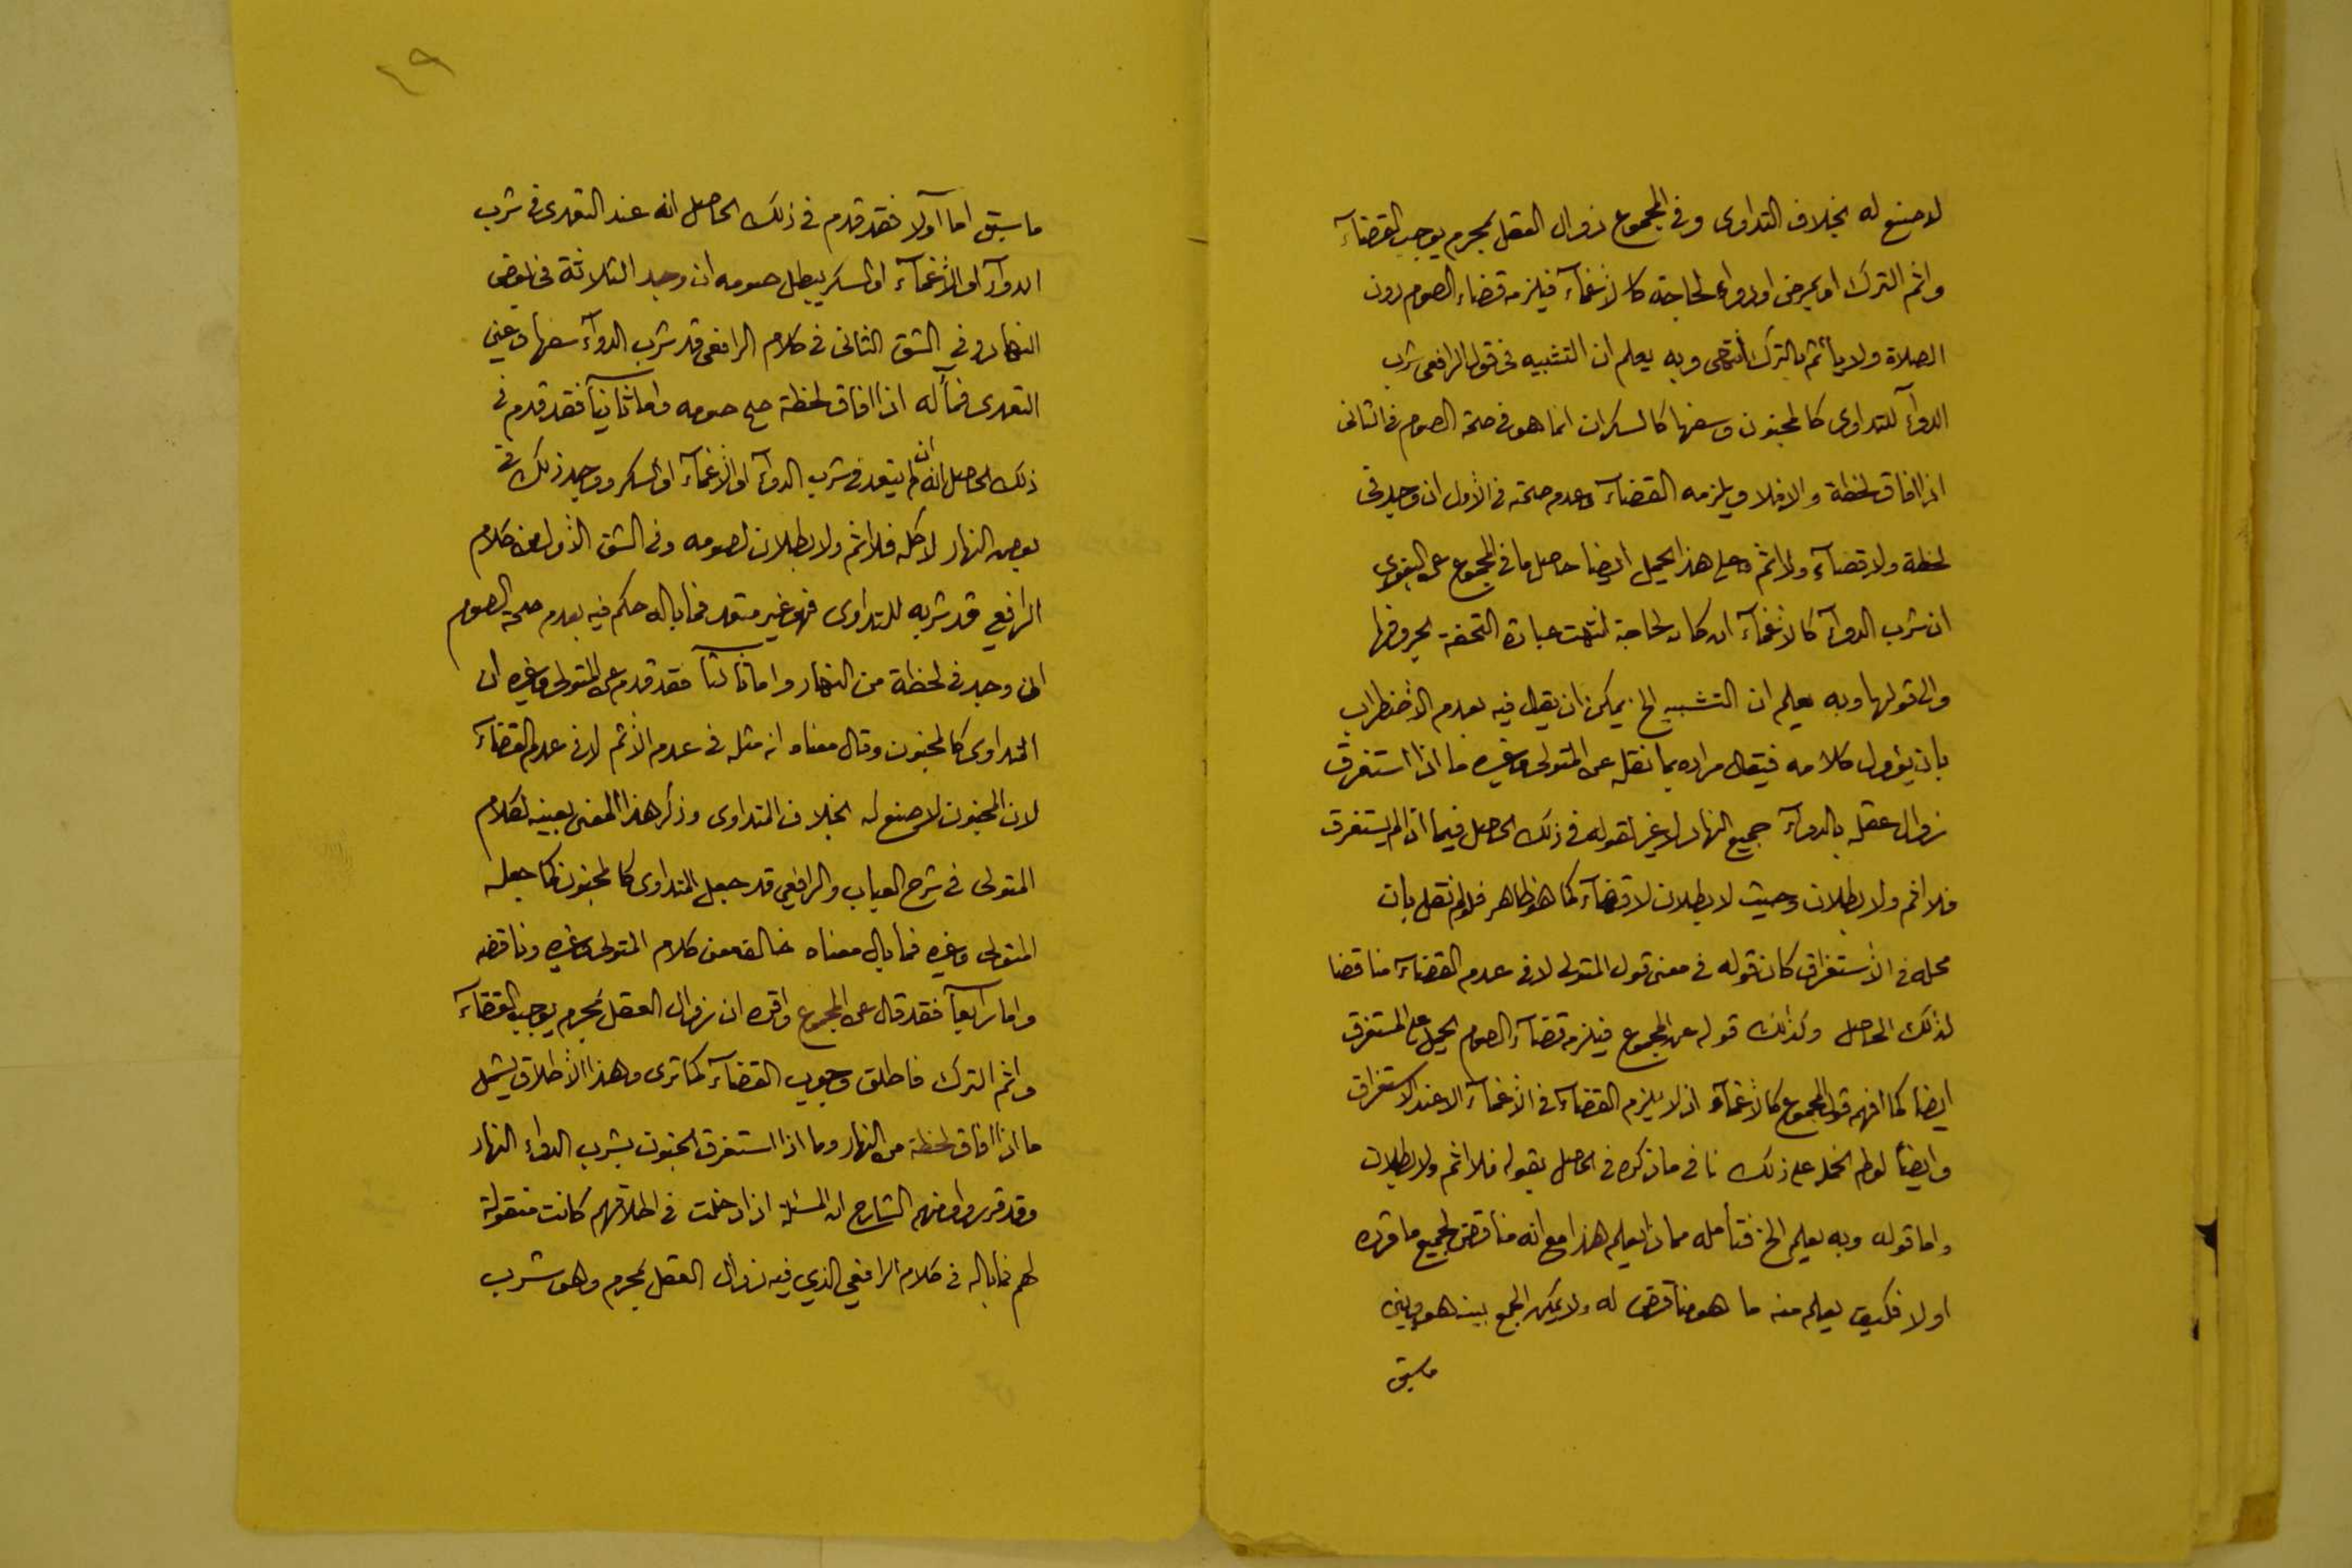 لا صنع له بخلاف التداوى وفى المجموع زوال العقل بمحرم يوجب القضآء
واثم الترك او بمرض او دواء لحاجة كالاغمآء فيلزمه قضاء الصوم دون
الصلاة ولا يأثم بالترك انتهى وبه يعلم ان التشبيه فى قول الرافعى شرب
الدوآء للتداوى كالجنون وسفها كالسكران انما هو فى صحة الصوم فى الثانى
اذا افاق لحظة والا فلا ويلزمه القضآء وعدم صحته فى الأول ان وجد فى
لحظة ولا قضآء ولا اثم وعلى هذا يحمل ايضا حاصل ما فى المجموع عن البغوى
ان شرب الدوآء كالاغمآء ان كان لحاجة انتهت عبارة التحفة بحروفها
والى قولها وبه يعلم ان التشبيه الخ يمكن ان يقال فيه بعدم الأضطراب
بان يؤول كلامه فيقال مراده بما نقله عن المتولى وغيره ما اذا استغرق
زوال عقله بالدوآء جميع النهار لا غير لقوله فى ذلك الحاصل فيما اذا لم يستغرق
فلا اثم ولا بطلان وحيث لا بطلان لا قضآء كما هو ظاهر فلو لم نقل بان
محله فى الأستغراق كان قوله فى معنى قول المتولى لا فى عدم القضآء مناقضا
لذلك الحاصل وكذلك قوله عن المجموع فيلزمه قضآء الصوم يحمل على المستغرق
ايضا كما افهمه قول المجموع كالأغمآء اذ لا يلزم القضآء فى الأغمآء الا عند الاستغراق
وايضاً لو لم نحمله على ذلك نافى ما ذكره فى الحاصل بقوله فلا اثم ولا بطلان
واما قوله وبه يعلم الخ فتأمله مما ذا يعلم هذا مع انه مناقض لجميع ما قرره
اولا فكيف يعلم منه ما هو مناقض له ولا يمكن الجمع بينه هو وبين
ما سبق
٢٩
ما سبق اما اولا فقد قدم فى ذلك الحاصل انه عند التعدى فى شرب
الدوآء او الأغمآء او السكر يبطل صومه ان وجد الثلاثة فى بعض
النهار وفي الشق الثانى فى كلام الرافعى قد شرب الدوآء سفها وعين
التعدى فما له اذا افاق لحظة صح صومه واما ثانياً فقد قدم فى
ذلك الحاصل انه ان لم يتعد فى شرب الدوآء او الأغمآء او السكر ووجد ذلك فى
بعض النهار لا كله فلا اثم ولا بطلان لصومه وفى الشق الأول من كلام
الرافعي قد شربه للتداوى فهو غير متعد فما باله حكم فيه بعدم صحة الصوم
ان وجد فى لحظة من النهار واما ثالثاً فقد قدم عن المتولى وغيره ان
التداوى كالجنون وقال معناه انه مثله فى عدم الأثم لا فى عدم القضآء
لان المجنون لا صنع له بخلاف المتداوى وذكر هذا المعنى بعينه لكلام
المتولى فى شرح العباب والرافعي قد جعل المتداوى كالمجنون كما جعله
المتولى وغيره فما بال معناه خالف معنى كلام المتولى وغيره وناقضه
واما رابعاً فقد قال عن المجموع واقره ان زوال العقل بمحرم يوجب القضآء
واثم الترك فاطلق وجوب القضآء كما ترى وهذا الأطلاق يشمل
ما اذا افاق لحظة من النهار وما اذا استغرق الجنون بشرب الدواء النهار
وقد قرروا ومنهم الشارح ان المسئلة اذا دخلت فى اطلاقهم كانت منقولة
لهم فما باله فى كلام الرافعي الذي فيه زوال العقل بمحرم وهو شرب